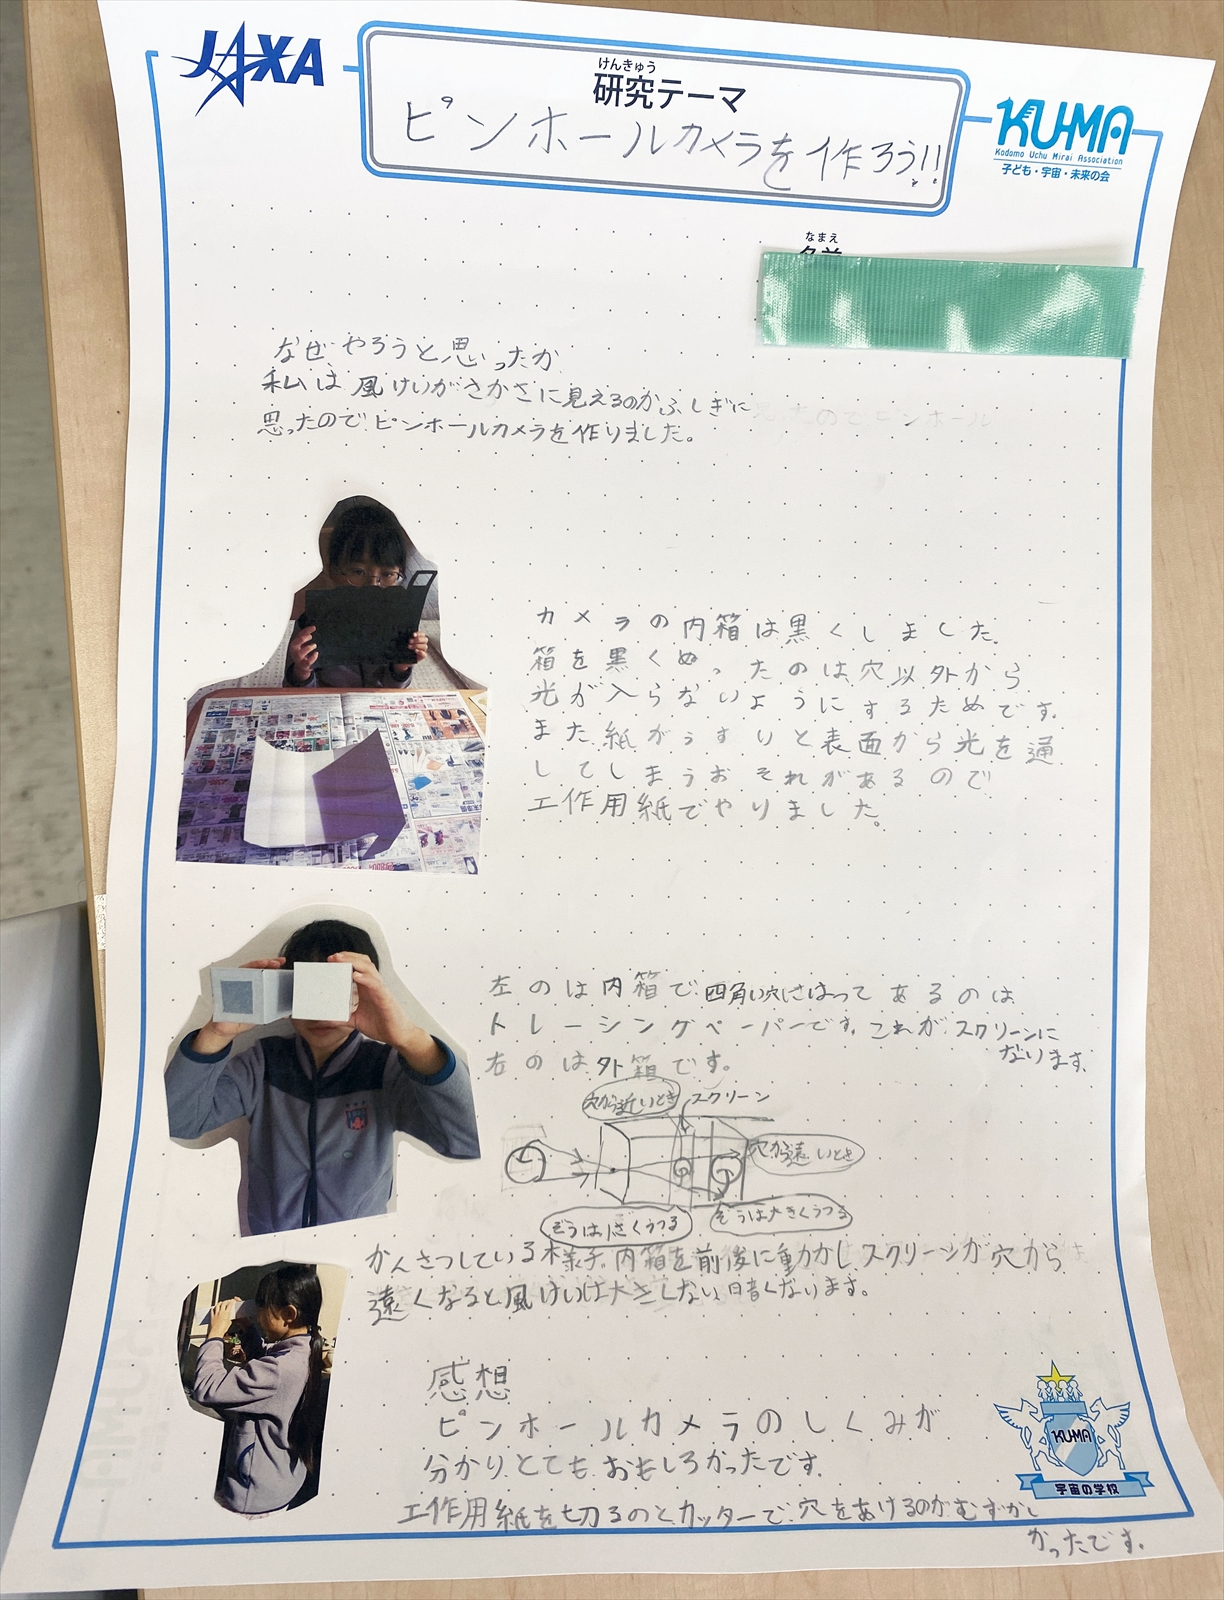 JAXA
けんきゅう
研究テーマ
ピンホールカメラを作ろう!!
KU-MA
Kodomo Uchu Mirai Association
子ども・宇宙・未来の会
なまえ
なぜやろうと思ったか
私は風けいがさかさに見えるのがふしぎに
思ったのでピンホールカメラを作りました。
カメラの内箱は黒くしました。
箱を黒くぬったのは穴以外から
光が入らないようにするためです。
また紙がうすいと表面から光を通
してしまうおそれがあるので
工作用紙でやりました。
左のは内箱で四角い穴にはってあるのは
トレーシングペーパーです。これがスクリーンに
なります。
右のは外箱です。
穴から近いとき
スクリーン
穴から遠いとき
ぞうは小さくうつる
ぞうは大きくうつる
かんさつしている様子。内箱を前後に動かしスクリーンが穴から
遠くなると風けいは大きくなり暗くなります。
感想
ピンホールカメラのしくみが
分かりとてもおもしろかったです。
工作用紙を切るのとカッターで穴をあけるのがむずかし
かったです。
KU-MA
宇宙の学校